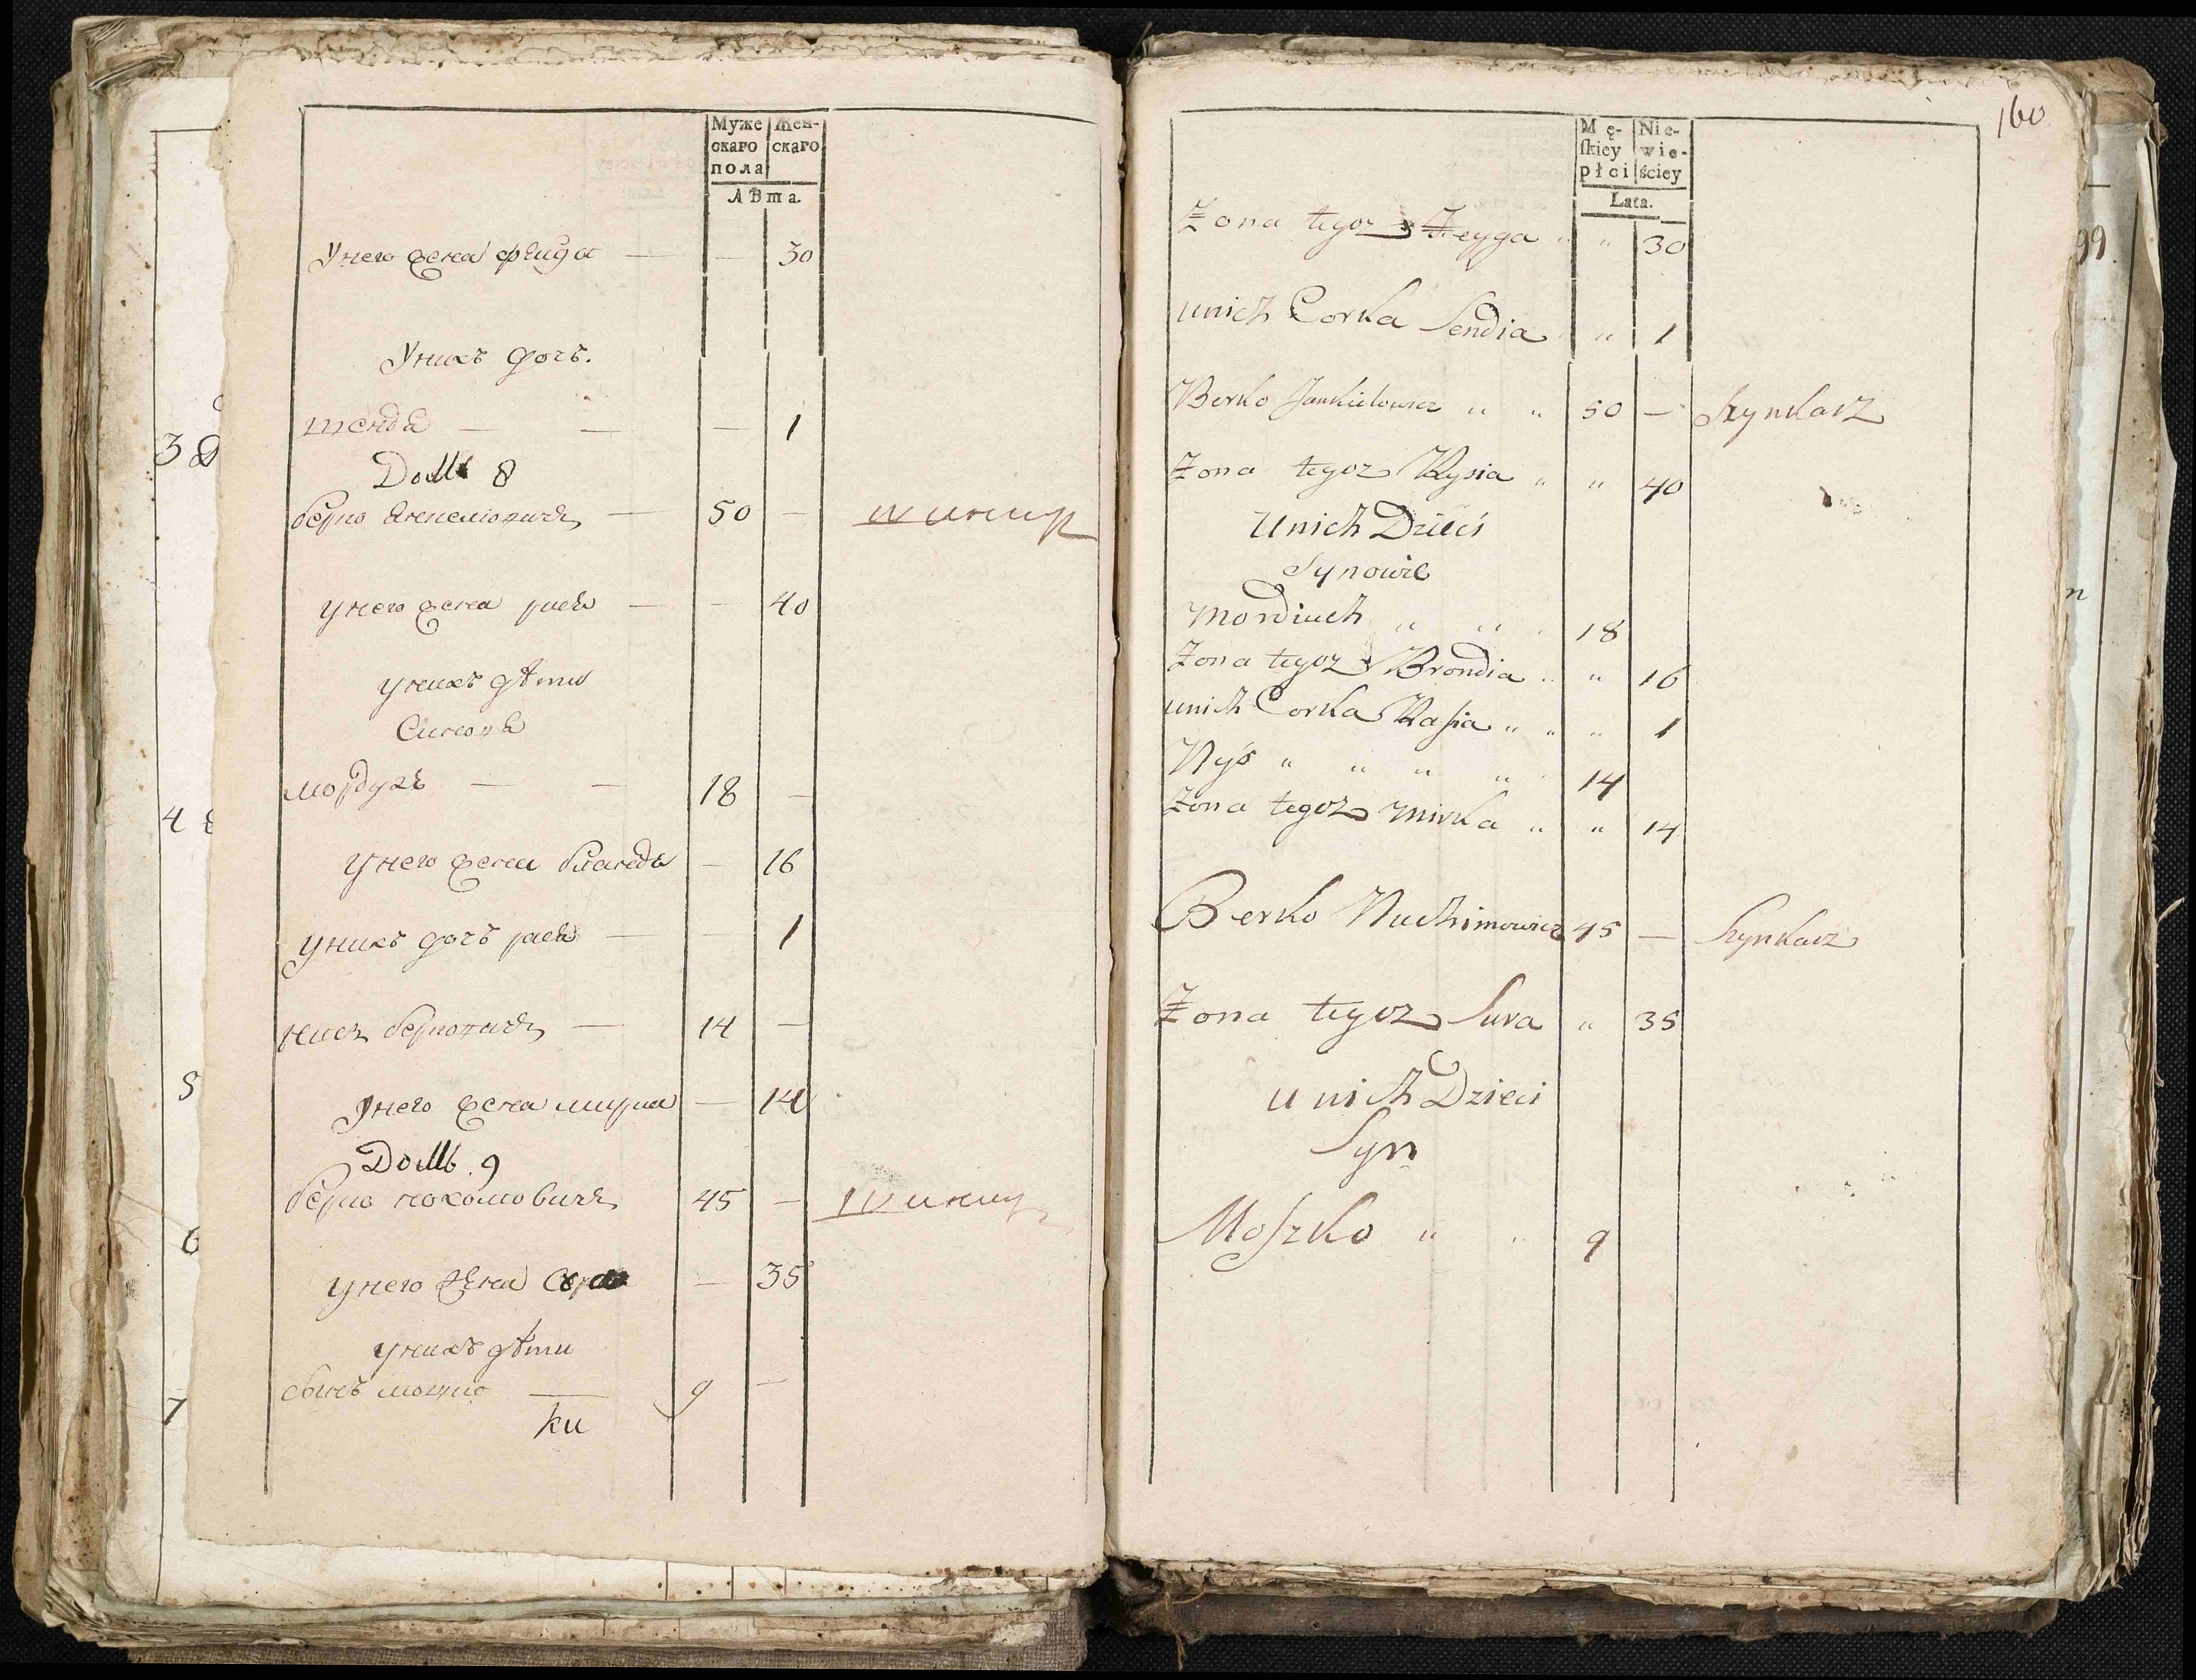 Муже Жен-
скаго скаго
пола
Лѣта.
Унего жена фейга — — 30
Унихъ дочь.
шендя — — — 1
Домъ 8
берко Янкелювичъ — 50 — шинкар
Унего жена рися — — 40
Унихъ дѣти
Синовя
мордухъ — — 18 —
Унего жена бландя — 16
Унихъ дочъ рася — — 1
нисъ берковичъ — 14 —
Унего жена мирка — 14
Домъ 9
берко нохомовичъ 45 — шинкар
Унего жена Сура — 35
Унихъ дѣти
сынъ мошко — 9 —
ки
160
Mę- Nie-
ſkiey wie-
płci ściey
Lata.
Zona tegoz Feyga " " 30
unich Corka Sendia " 1
Berko Jankielowicz " " 50 — Szynkarz
Zona tegoz Rysia " " 40
Unich Dzieci
Synowie
Mordiuch " " 18
Zona tegoz Brondia " " 16
unich Corka Rasia " " " 1
Nys " " " " 14
Zona tegoz Mirka " " 14
Berko Nuchimowicz 45 — Szynkarz
Zona tegoz Sura " 35
unich Dzieci
Syn
Moszko " " 9
99
38
4
5
6
7